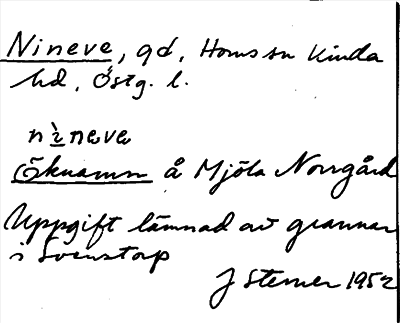 Nineve, gd, Horns sn Kinda
hd, Östg. l.
nìneve
Öknamn å Mjöla Norrgård
Uppgift lämnad av grannar
i Svenstorp
J Sterner 1952